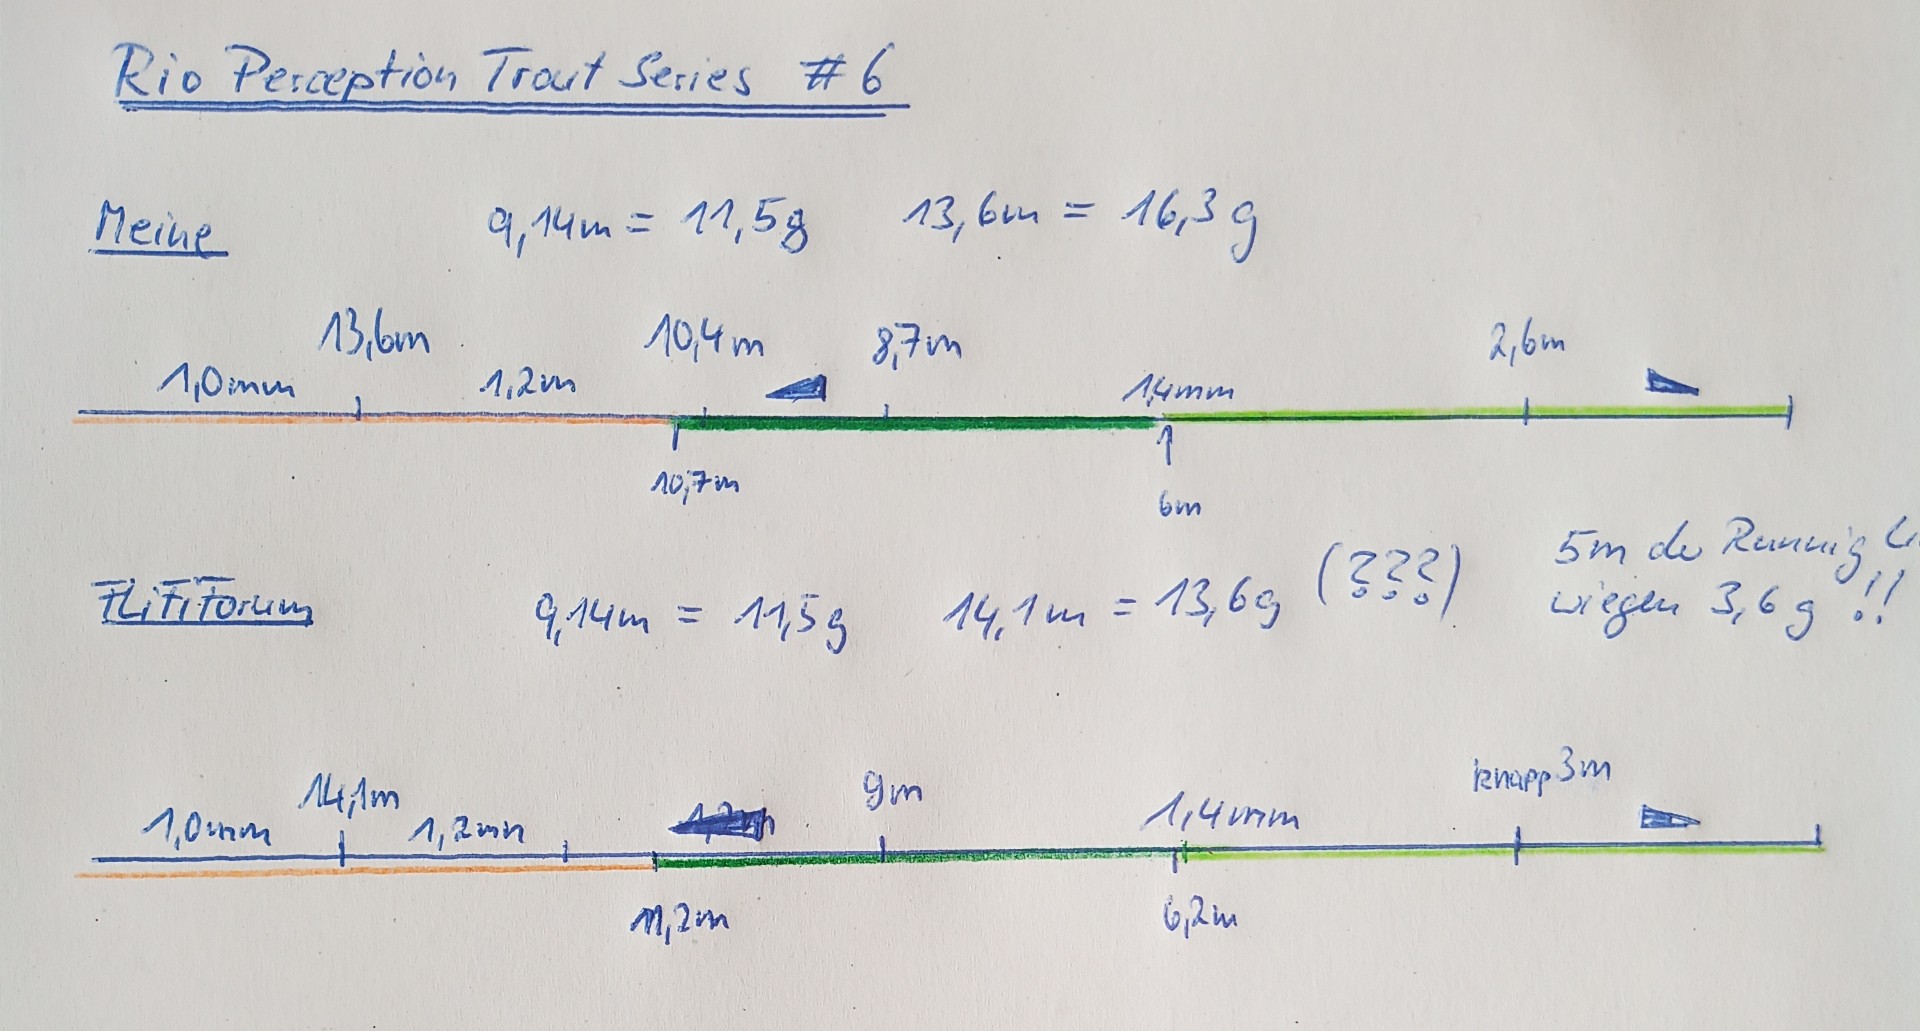 Rio Perception Trout Series #6
Meine 9,14m = 11,5g 13,6m = 16,3g
13,6m 10,4m 8,7m 2,6m
1,0mm 1,2m 1,4mm
10,7m 6m
5m de Runnig
FLiFiForum 9,14m = 11,5g 14,1m = 13,6g (???) wiegen 3,6g !!
14,1m 9m knapp 3m
1,0mm 1,2mm 1,4mm
11,2m 6,2m